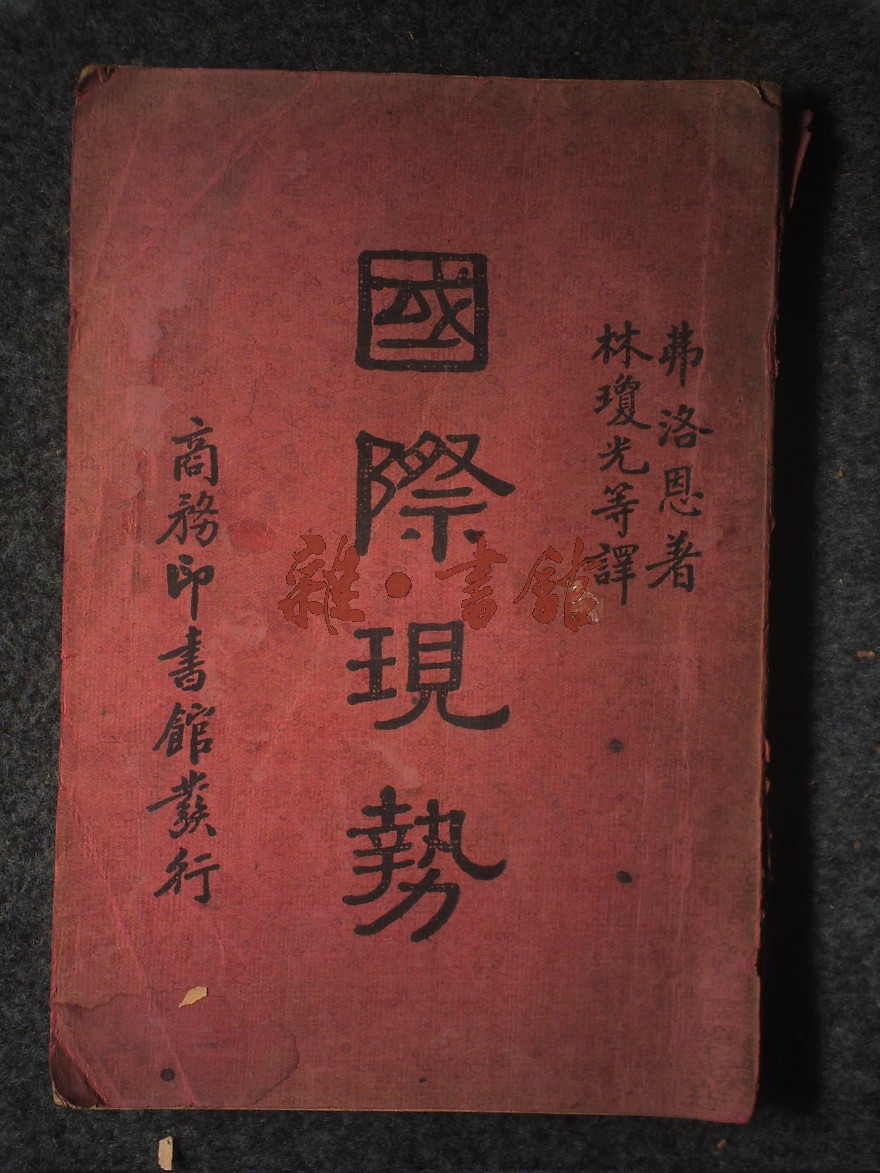 弗洛恩著
林瓊光等譯
國際現勢
商務印書館發行
雜·書館